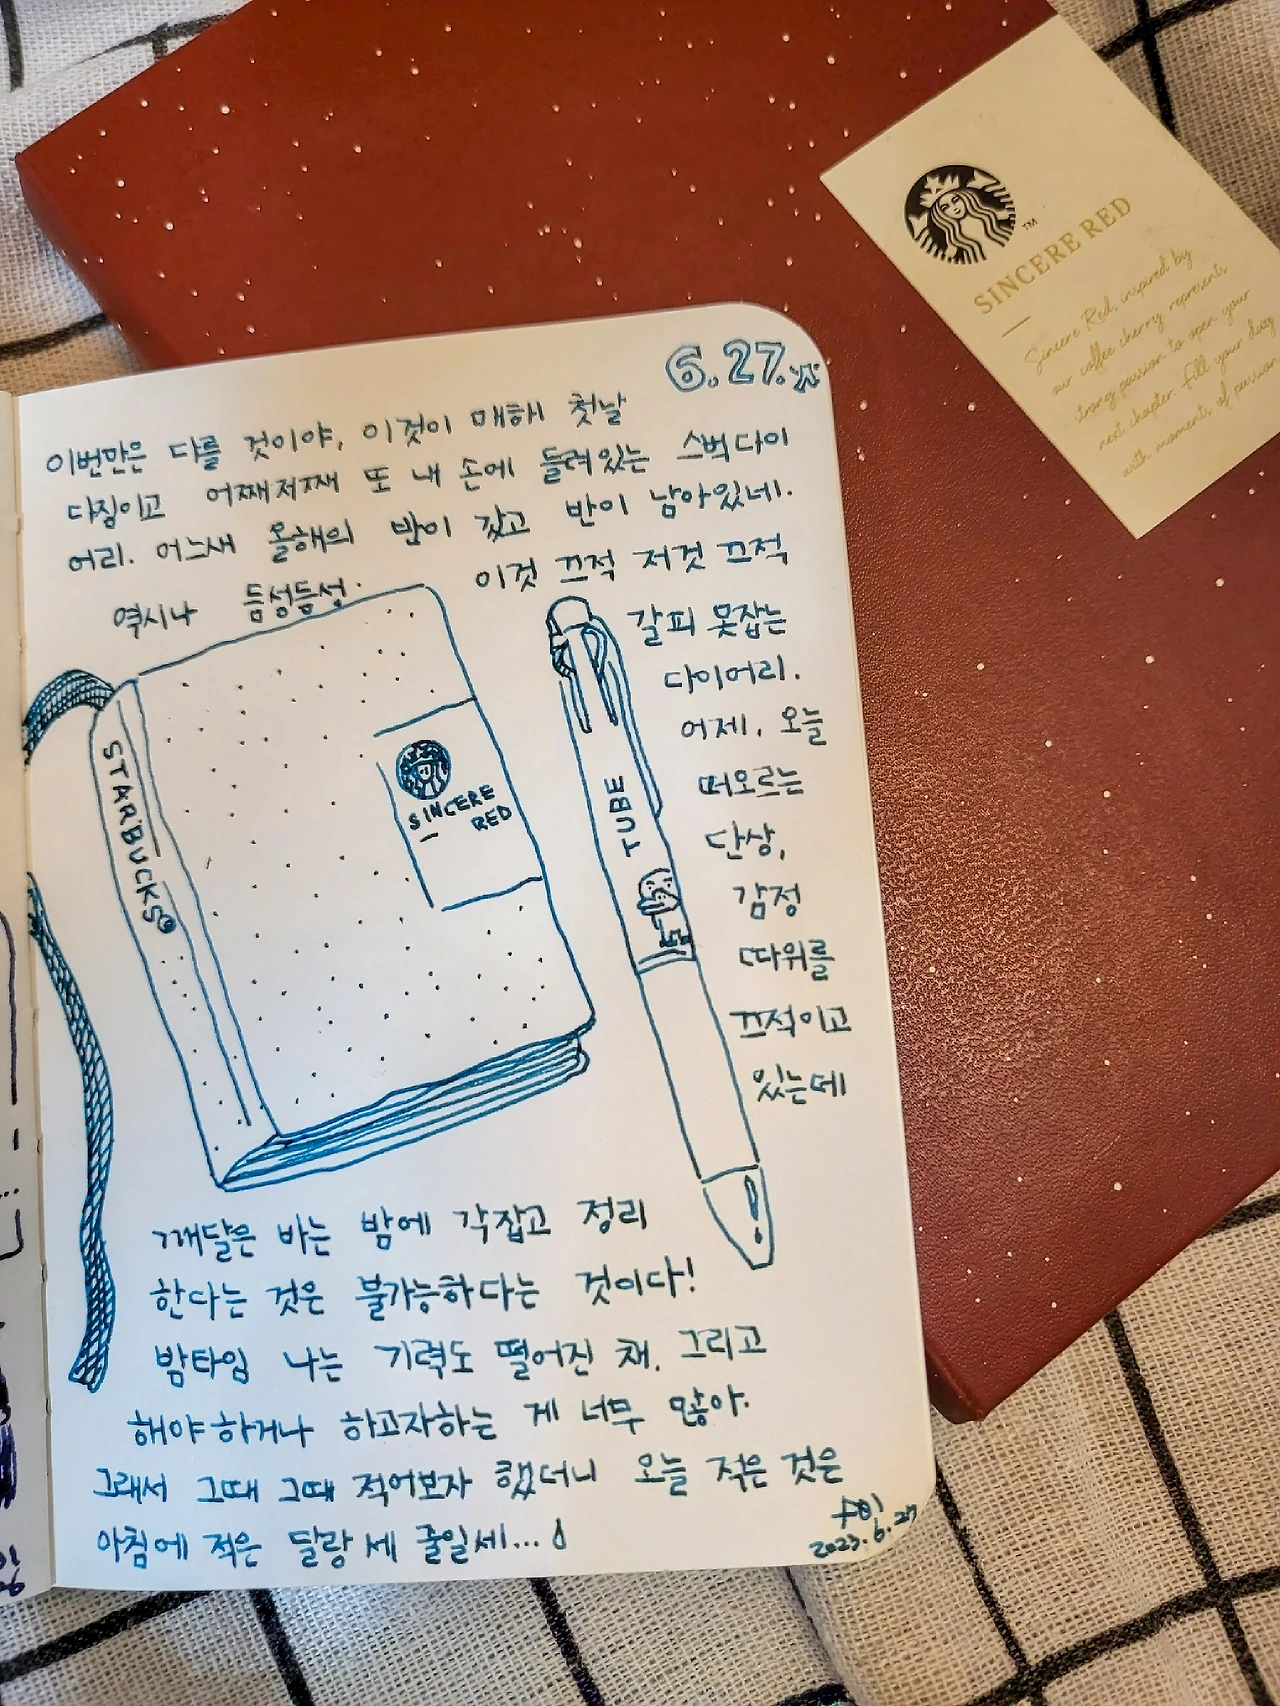 SINCERE RED
Sincere Red, inspired by
our coffee cherry represents
strong passion to open your
next chapter. Fill your day
with moments of passion
TM
6.27.
이번만은 다를 것이야, 이것이 매해 첫날
다짐이고 어쩌저쩌 또 내 손에 들려있는 스벅다이
어리. 어느새 올해의 반이 갔고 반이 남아있네.
역시나 듬성듬성. 이것 끄적 저것 끄적
갈피 못잡는
다이어리.
어제, 오늘
떠오르는
단상,
감정
따위를
끄적이고
있는데
STARBUCKS
SINCERE
RED
TUBE
깨달은 바는 밤에 각잡고 정리
한다는 것은 불가능하다는 것이다!
밤타임 나는 기력도 떨어진 채, 그리고
해야하거나 하고자하는 게 너무 많아.
그래서 그때 그때 적어보자 했더니 오늘 적은 것은
아침에 적은 달랑 세 줄일세...
2023.6.27